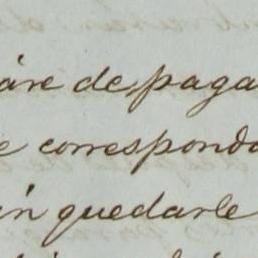 áre de paga
e corresponda
án quedarle